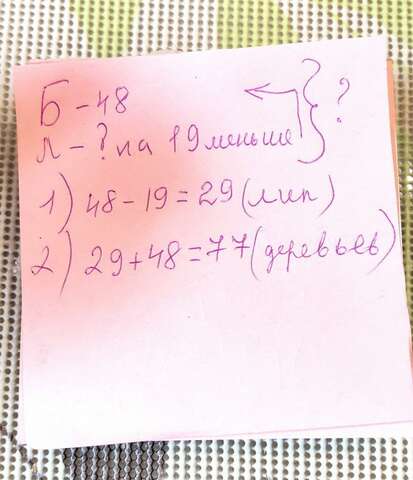 Б - 48
Л - ? на 19 меньше } ?
1) 48 - 19 = 29 (лип)
2) 29 + 48 = 77 (деревьев)